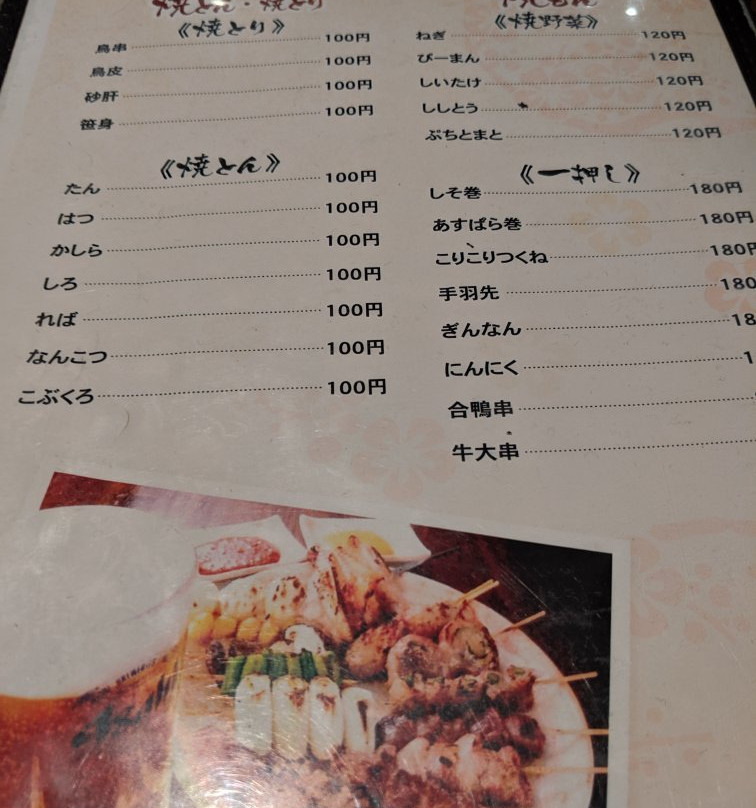 焼とん・焼とり
《焼とり》
鳥串 100円
鳥皮 100円
砂肝 100円
笹身 100円
《焼とん》
たん 100円
はつ 100円
かしら 100円
しろ 100円
れば 100円
なんこつ 100円
こぶくろ 100円
《焼野菜》
ねぎ 120円
ぴーまん 120円
しいたけ 120円
ししとう 120円
ぷちとまと 120円
《一押し》
しそ巻 180円
あすぱら巻 180円
こりこりつくね 180円
手羽先 180
ぎんなん 18
にんにく 1
合鴨串
牛大串